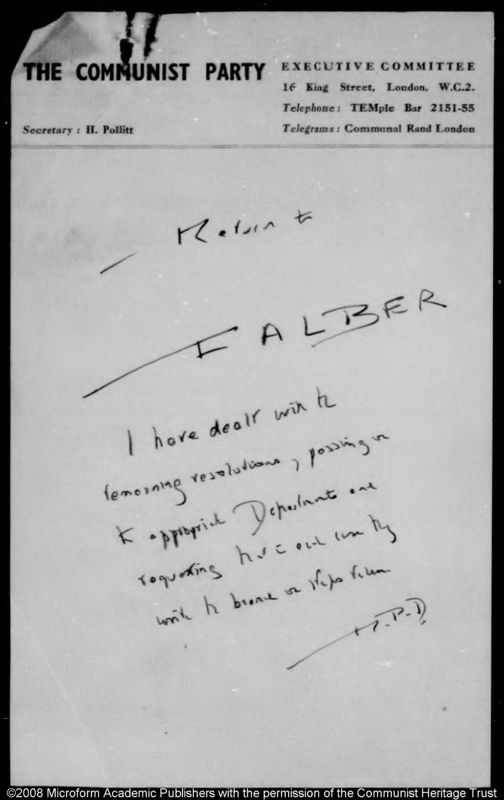 THE COMMUNIST PARTY
EXECUTIVE COMMITTEE
16 King Street, London, W.C.2.
Telephone: TEMple Bar 2151-55
Secretary: H. Pollitt
Telegrams: Communal Rand London
Return to
FALBER
I have dealt with the
remaining resolutions, passing on
to appropriate Departments and
requesting that in each case they
write the branch on steps taken
R.P.D.
©2008 Microform Academic Publishers with the permission of the Communist Heritage Trust